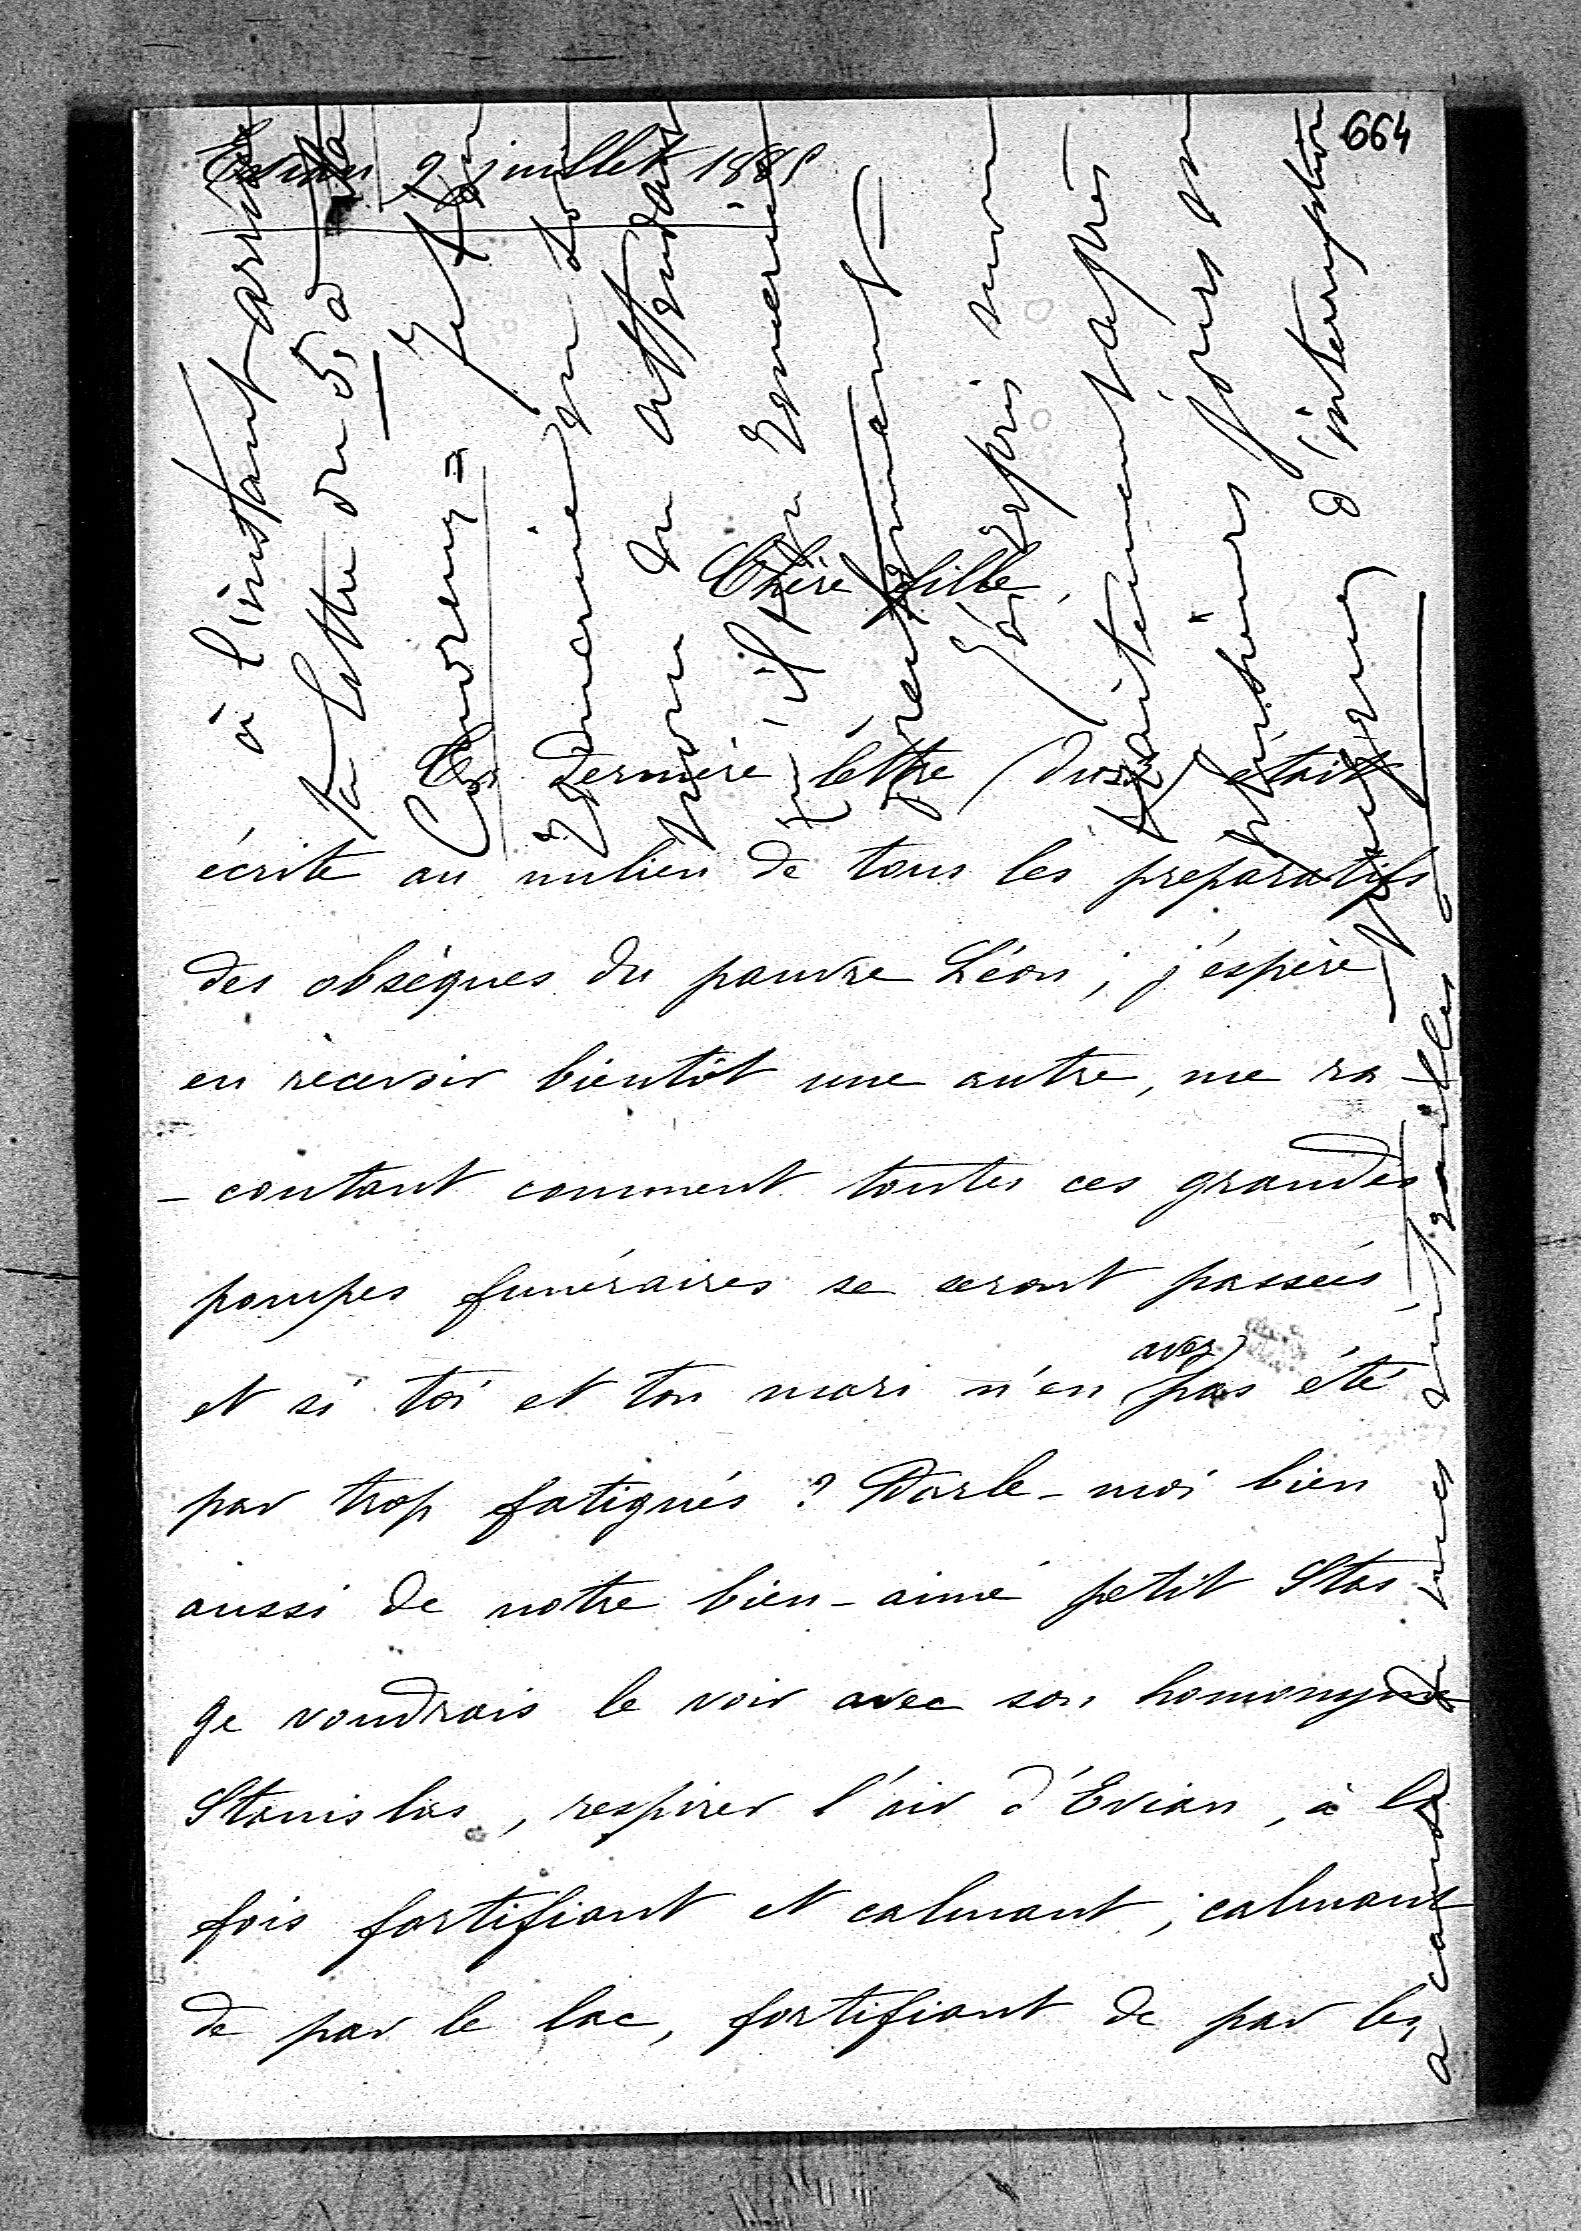 664
Evian 9 juillet 1885
Chère fille,
Ta dernière lettre (du 3) était
écrite au milieu de tous les préparatifs
des obsèques du pauvre Léon ; j'espère
en recevoir bientôt une autre, me ra
- contant comment toutes ces grandes
pompes funéraires se seront passées,
et si toi et ton mari n'en avez pas été
par trop fatigués ? Parle-moi bien
aussi de notre bien-aimé petit Stas
Je voudrais le voir avec son homonyme
Stanislas, respirer l'air d'Evian, à la
fois fortifiant et calmant ; calmant
de par le lac, fortifiant de par les
à l'instant arrive
ta lettre du 5, de
qu'il
J'ai repris mon
traitement après
plusieurs jours
d'interruption
a cause de mes entrailles